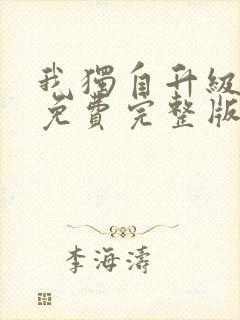 我獨自升級
免費完整版
李海濤